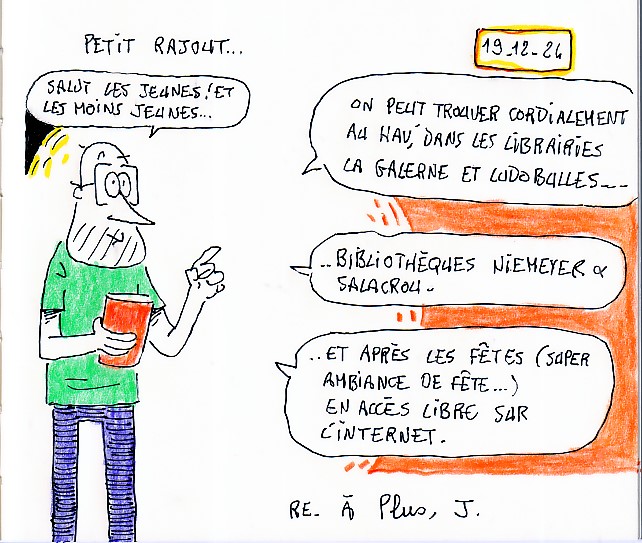 PETIT RAJOUT...
19-12-24
SALUT LES JEUNES! ET
LES MOINS JEUNES...
ON PEUT TROUVER CORDIALEMENT
AU HAV', DANS LES LIBRAIRIES
LA GALERNE ET LUDOBULLES...
..BIBLIOTHÈQUES NIEMEYER &
SALACROU.
..ET APRÈS LES FÊTES (SUPER
AMBIANCE DE FÊTE...)
EN ACCÈS LIBRE SUR
L'INTERNET.
RE. À Plus, J.